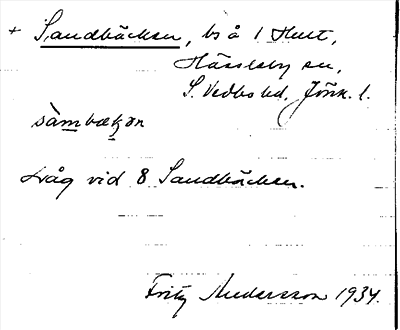 + Sandbäcken, bs å 1 Hult,
Hässleby sn,
S. Vedbo hd, Jönk. l.
sàmbækən
Låg vid 8 Sandbäcken.
Fritz Andersson 1934.